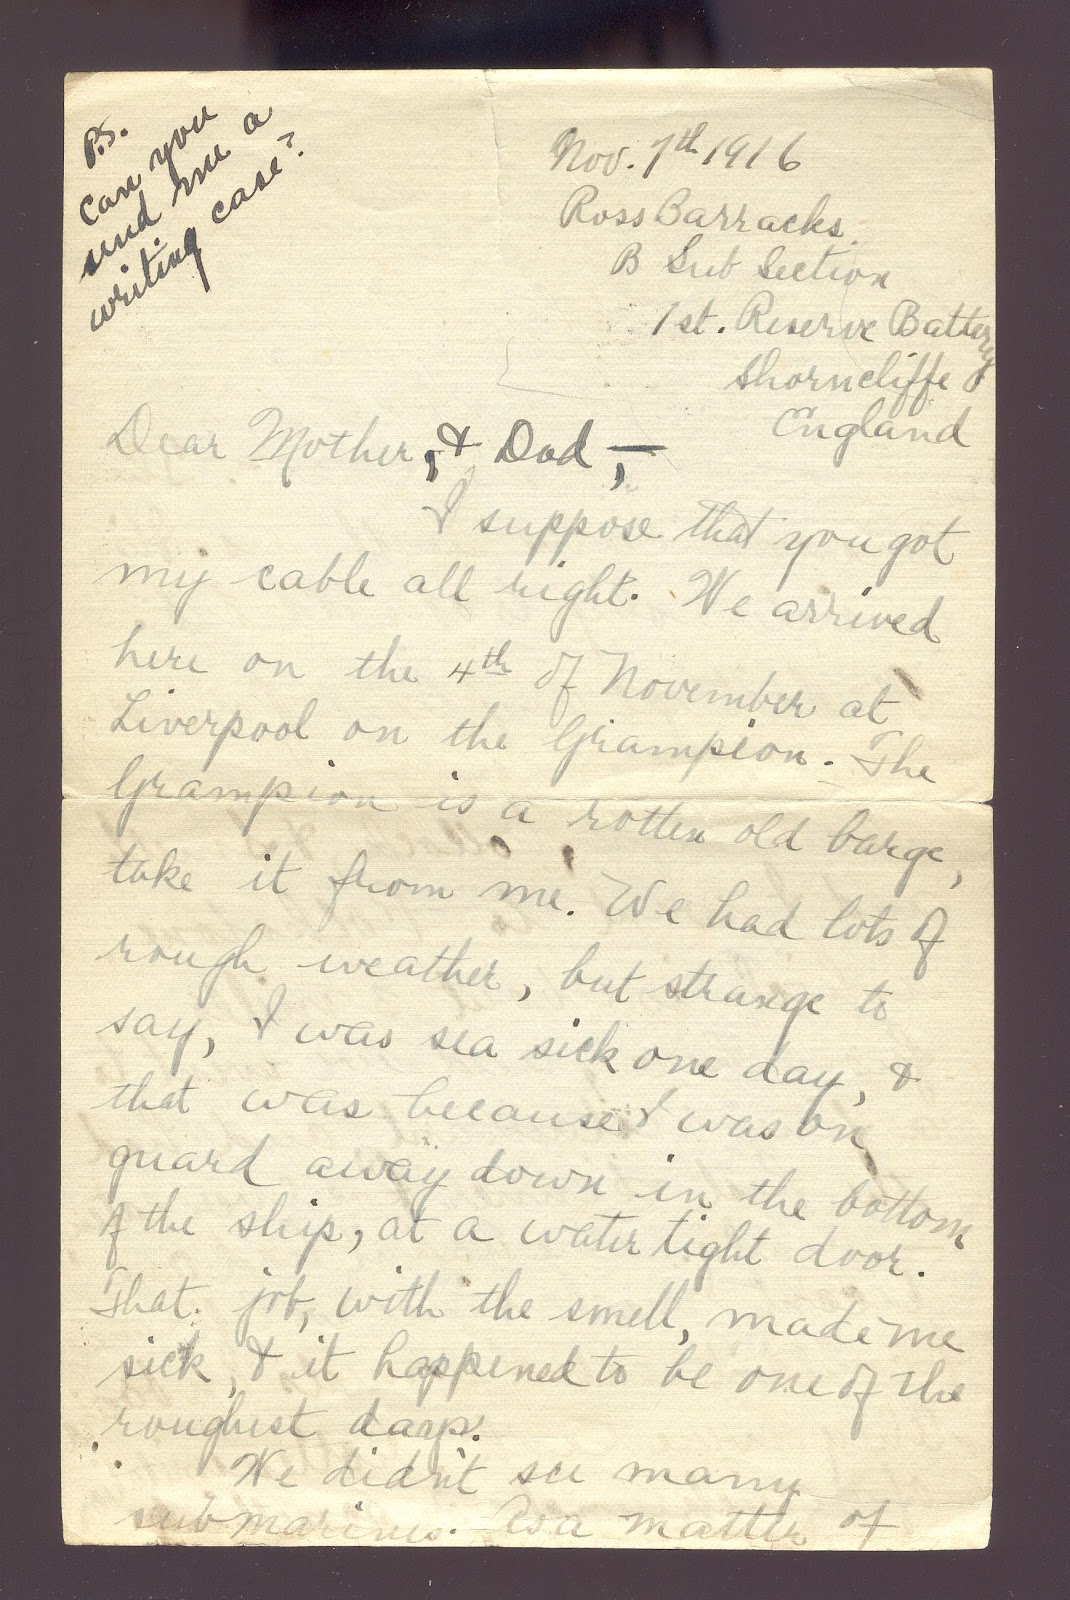 P.S.
Can you
send me a
writing case?
Nov. 7th 1916
Ross Barracks.
B Sub Section
1st. Reserve Battery
Shorncliffe
England
Dear Mother, & Dad,—
I suppose that you got
my cable all right. We arrived
here on the 4th of November at
Liverpool on the Grampion. The
Grampion is a rotten old barge,
take it from me. We had lots of
rough weather, but strange to
say, I was sea sick one day, &
that was because I was on
guard away down in the bottom
of the ship, at a water tight door.
That job, with the smell, made me
sick, & it happened to be one of the
roughest days.
We didn't see many
submarines. As a matter of